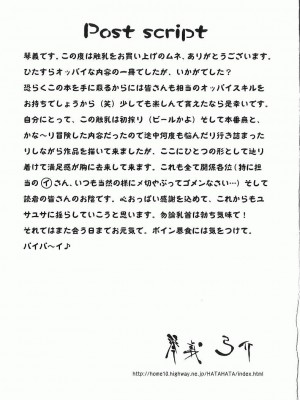 Post script
琴義です。この度は触乳をお買い上げのムネ、ありがとうございます。
ひたすらオッパイな内容の一冊でしたが、いかがでした？
恐らくこの本を手に取るからには皆さんも相当のオッパイスキルを
お持ちでしょうから（笑）少しでも楽しんで貰えたなら幸いです。
自分にとって、この触乳は初搾り（ビールかよ）そして本番典と、
かな～り冒険した内容だったので途中何度も悩んだり行き詰まった
りしながら作品を描いて来ましたが、ここにひとつの形として辿り
着けて満足感が胸に去来して来ます。これも全て関係各位（特に担
当のイさん、いつも当然の様に〆切やぶってゴメンなさい…）そして
読者の皆さんのお陰です。心おっぱい感謝を込めて、これからもユ
サユサに揺らしていこうと思います。勿論乳首は勃ち気味で！
それではまた会う日までお元気で。ボイン暴食には気をつけて。
バイバ～イ♪
琴義弓介
http://home10.highway.ne.jp/HATAHATA/index.html